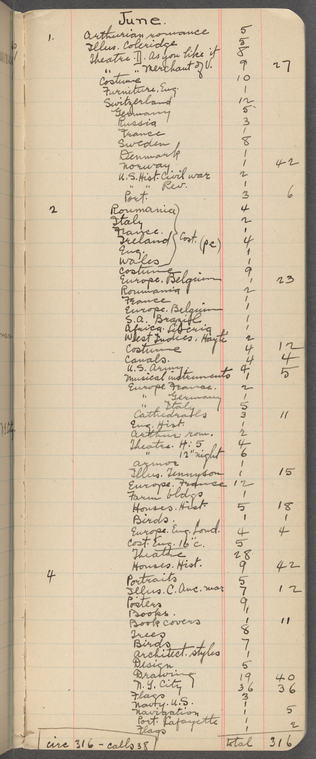 June.
1. Arthurian romance 5
Illus. Coleridge 5
Theatre II. As you like it 8
" " Merchant of V. 9 27
Costume 10
Furniture, Eng. 1
Switzerland 12
Germany 5
Russia 3
France 1
Sweden 8
Denmark 1
Norway 1 42
U.S. Hist. Civil war 2
" " Rev. 1
Port. 3 6
2 Roumania 4
Italy 2
France. 1
Ireland Cost. (pc) 4
Eng. 1
Wales 1
Costume 9
Europe. Belgium 1 23
Roumania 2
France 1
Europe. Belgium 1
S.A. Brazil 1
Africa. Liberia 1
West Indies. Hayti 2
Costume 4 12
Canals. 4 4
U.S. Army 4
Musical instruments 1 5
Europe France. 2
" Germany 1
" Italy 5
Cathedrals 3 11
Eng. Hist. 1
Arthur. rom. 2
Theatre. H: 5 4
" 12th night 6
armor 1
Illus. Tennyson 1 15
Europe. France 12
Farm bldgs 1
Houses. Hist. 5 18
Birds. 1 1
Europe. Eng. Lond. 4 4
Cost. Eng. 16th c. 5
Theatre 28
Houses. Hist. 9 42
4 Portraits 5
Illus. C. Anc. mar 7 12
Posters 9
Books. 1
Book covers 1 11
Trees 8
Birds 7
Architect. styles 1
Design 5
Drawing 19 40
N.Y. City 36 36
Flags 3
Navy. U.S. 1
Navigation 1 5
Port. Lafayette 1
Flags 1 2
circ 316 - calls 38 Total 316